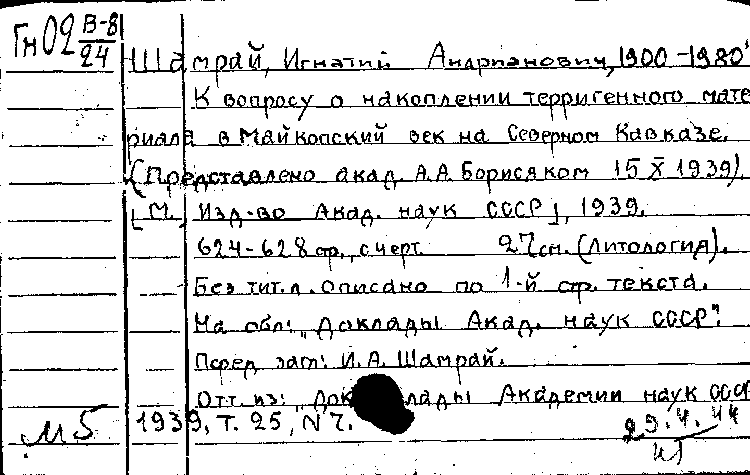 Гн02 В-8
24
Шамрай, Игнатий Андрианович, 1900-1980
К вопросу о накоплении терригенного мате
риала в Майкопский век на Северном Кавказе.
(Представлено акад. А.А. Борисяком 15 X 1939).
[М. Изд-во Акад. наук СССР], 1939.
624-628 стр., с черт. 27 см. (Литология).
Без тит. л. описано по 1-й стр. текста.
На обл: "Доклады Акад. наук СССР".
Перед загл: И.А. Шамрай.
Отт. из: "Доклады Академии наук СССР
1939, Т. 25, N 7.
М5
29.4.44